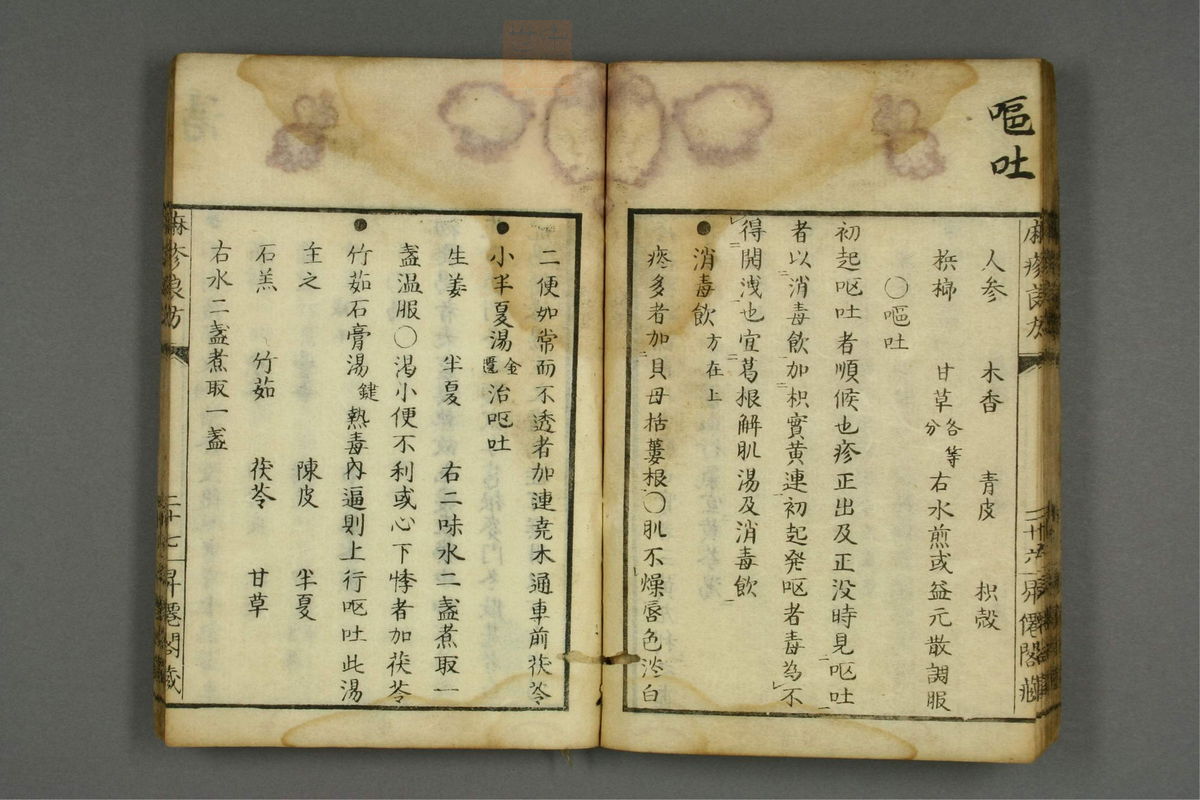 嘔吐
麻疹良方
二十六
昇僊閣藏
人参 木香 青皮 枳殼
梹榔 甘草各等分 右水煎或益元散調服
〇嘔吐
初起呕吐者順候也疹正出及正没時見呕吐
者以消毒飲加枳實黄連初起発呕者毒為不
得開洩也宜葛根解肌湯及消毒飲
●消毒飲方在上
痰多者加貝母括蔞根〇肌不燥唇色淡白
二便如常而不透者加連堯木通車前茯苓
●小半夏湯金匱治呕吐
生姜 半夏 右二味水二盞煮取一
盞温服〇渇小便不利或心下悸者加茯苓
●竹茹石膏湯鍵熱毒內逼則上行呕吐此湯
主之 陳皮 半夏
石羔 竹茹 茯苓 甘草
右水二盞煮取一盞
麻疹良方
二十七
昇僊閣藏